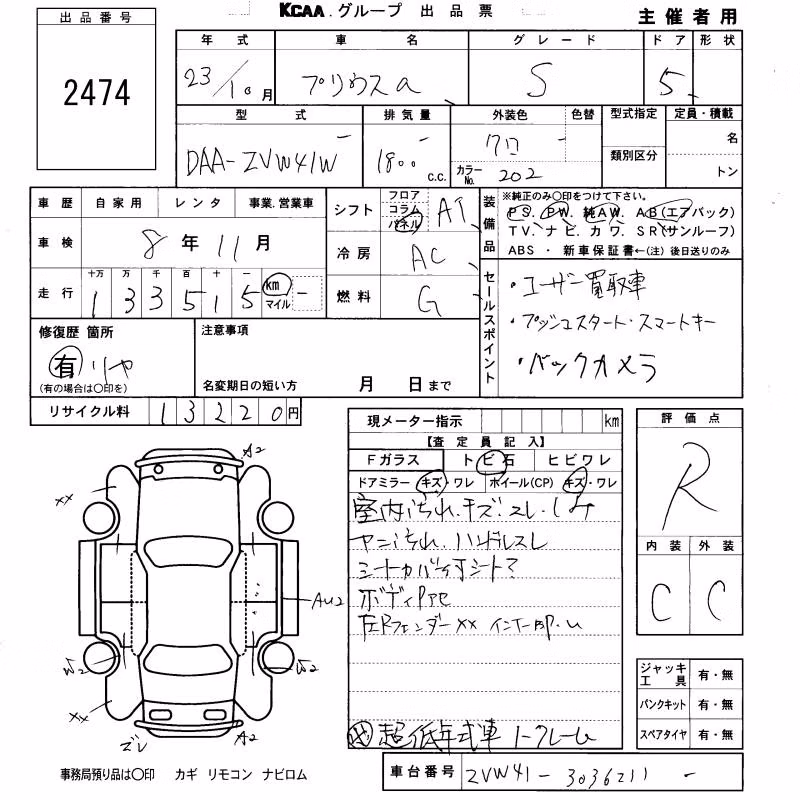 KCAA.グループ 出品票
主催者用
出品番号
2474
年式 車名 グレード ドア 形状
23/10月 プリウスα S 5
型式 排気量 外装色 色替 型式指定 定員・積載
DAA-ZVW41W 1800 c.c. クロ 類別区分 名
カラーNo. 202 トン
車歴 自家用 レンタ 事業.営業車
車検 8年11月
走行 十万 万 千 百 十 一
133515 km マイル
シフト フロア コラム パネル AT
冷房 AC
燃料 G
装備品
※純正のみ〇印をつけて下さい。
PS、PW、純AW、AB(エアバック)
TV、ナビ、カワ、SR(サンルーフ)
ABS・新車保証書←(注)後日送りのみ
セールスポイント
・ユーザー買取車
・プッシュスタート・スマートキー
・バックカメラ
修復歴 箇所
有 リヤ
(有の場合は〇印を)
注意事項
名変期日の短い方 月 日まで
リサイクル料 13220円
現メーター指示 km
【査定員記入】
Fガラス トビ石 ヒビワレ
ドアミラー キズ・ワレ ホイール(CP) キズ・ワレ
室内汚れ.キズ.スレ.しみ
ヤニ汚れ.ハンドルスレ
シートカバー付シート?
ボディ
フェンダーXX
超低年式車
評価点
R
内装 外装
C C
A2
XX
AU2
W2
W2
XX
ズレ
A2
ジャッキ工具 有・無
パンクキット 有・無
スペアタイヤ 有・無
事務局預り品は〇印 カギ リモコン ナビロム
車台番号 ZVW41-3036211